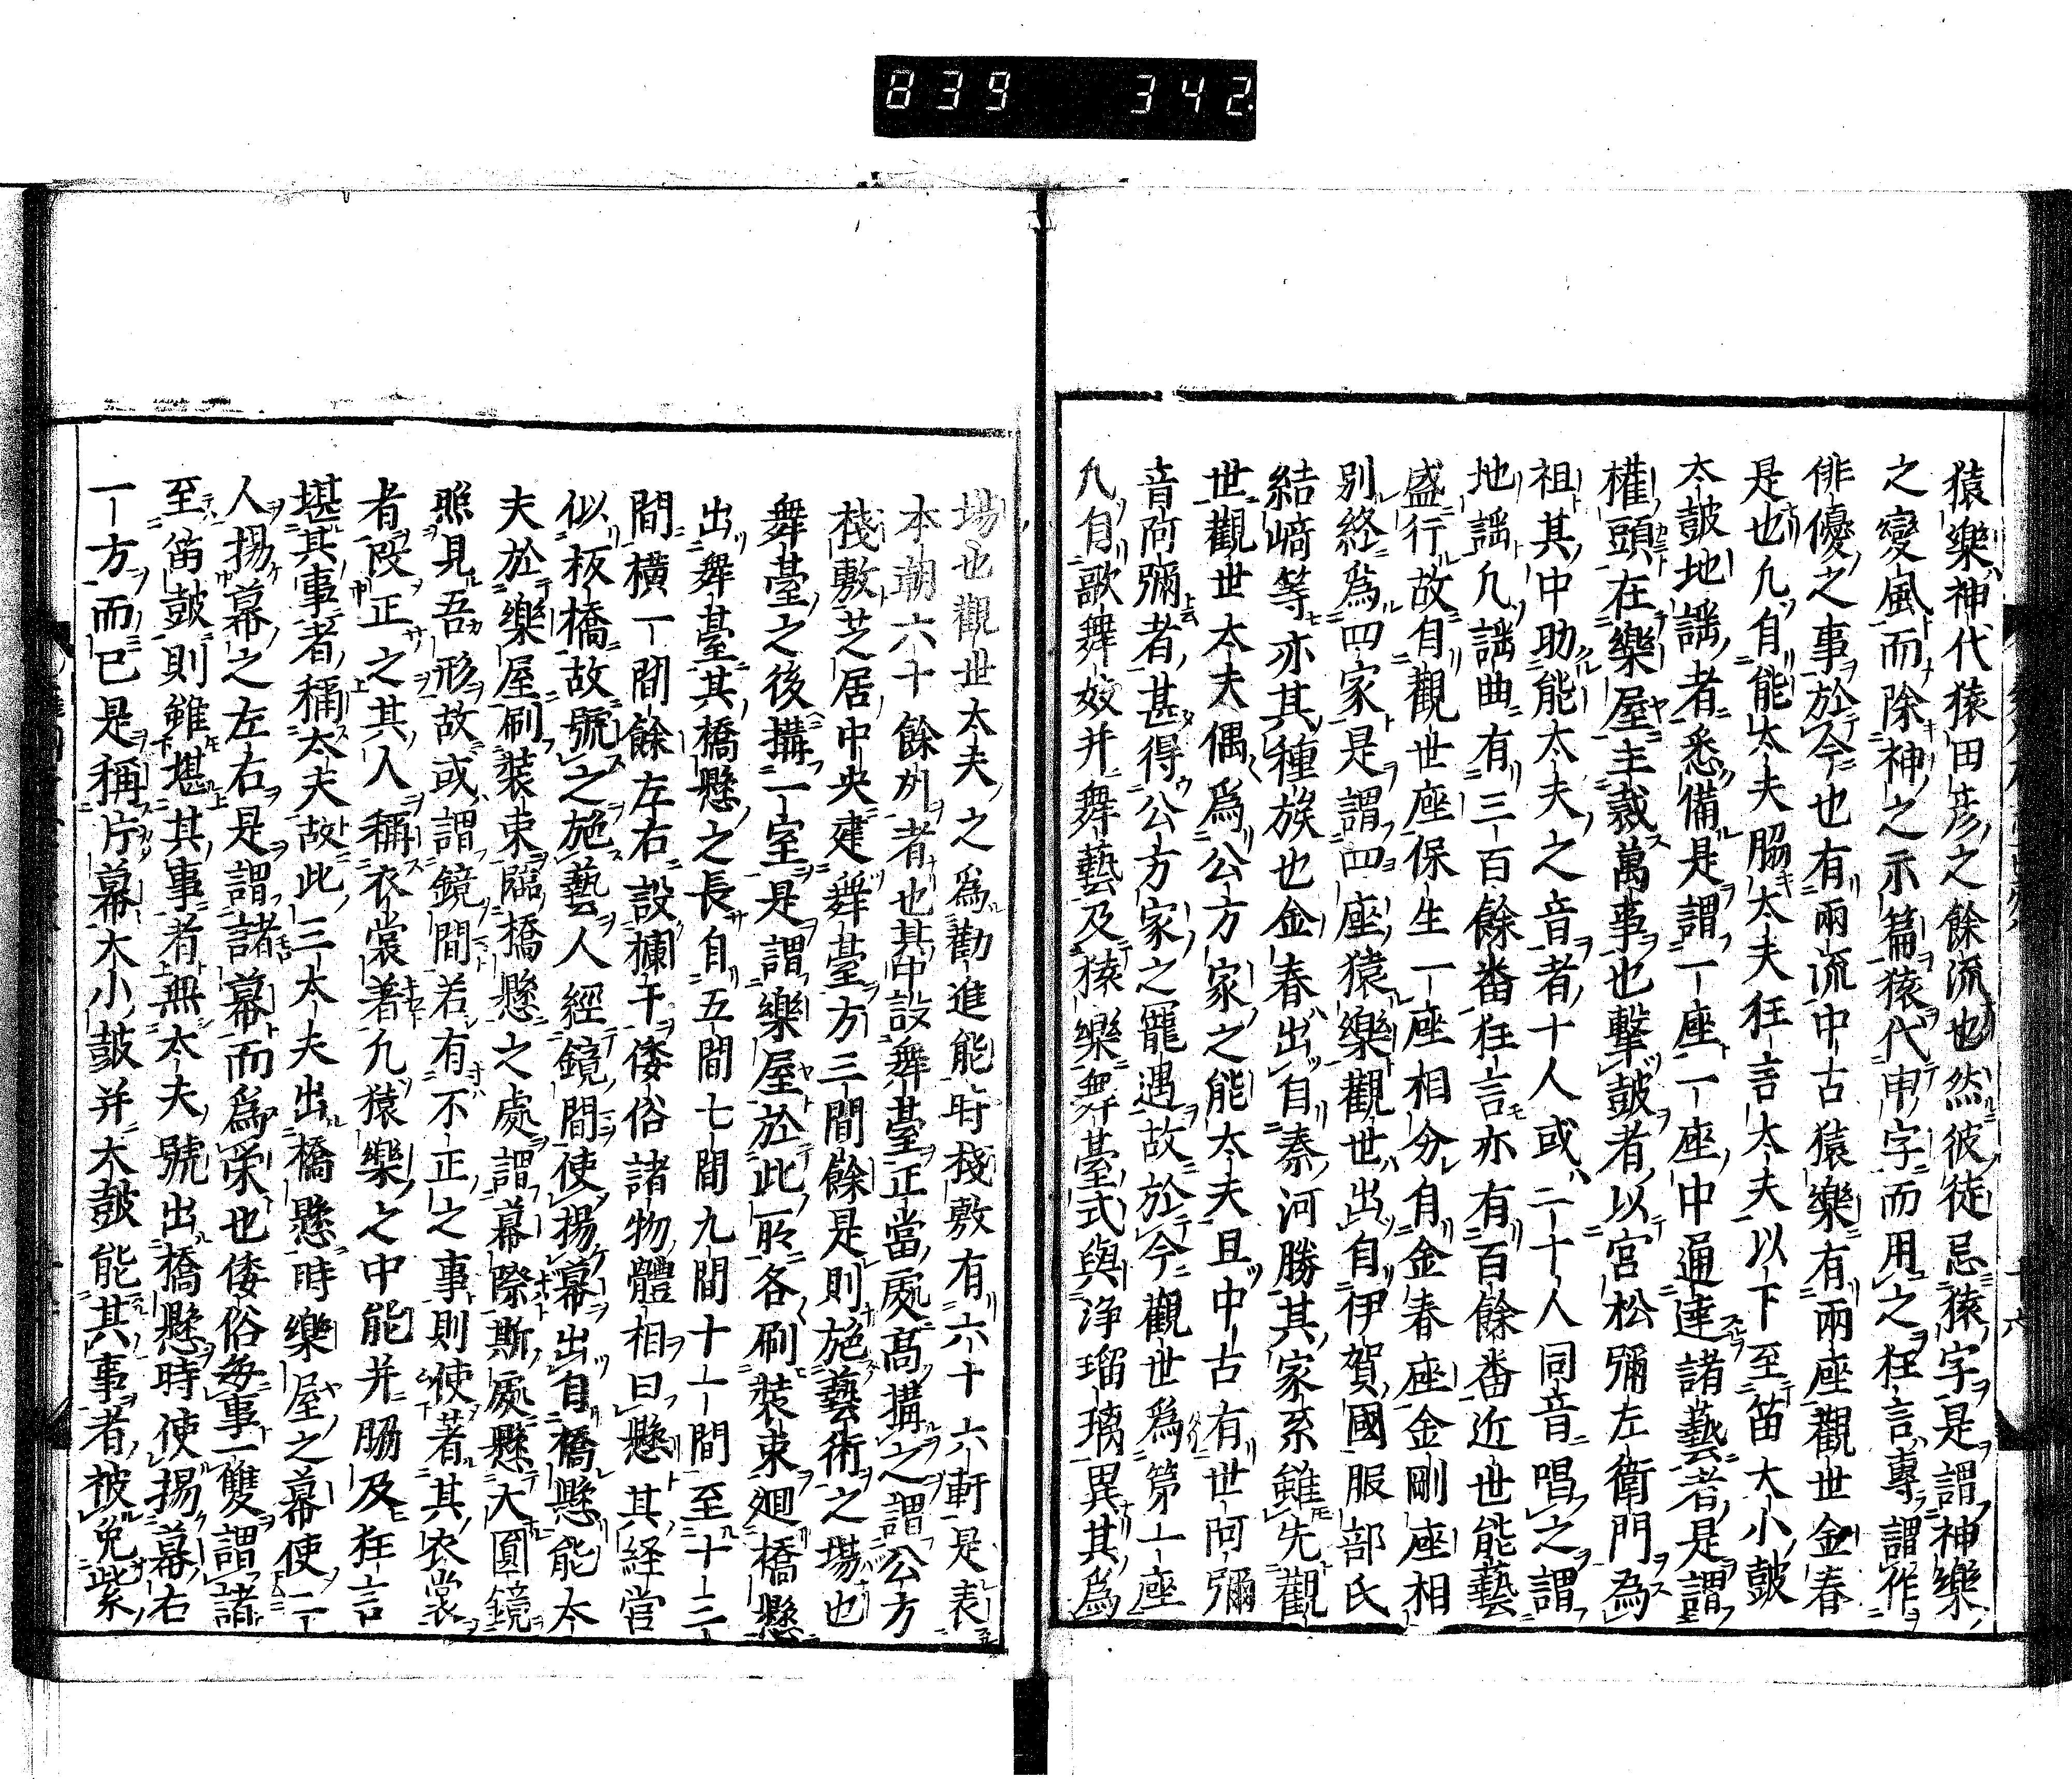 839 342
猿樂神代猿田彦之餘流也然彼徒忌猿字是謂神樂
之變風而除神之示篇猿代申字而用之狂言專謂作
俳優之事於今也有兩流中古猿樂有兩座觀世金春
是也凢自能太夫脇太夫狂言太夫以下至笛大小鼓
太鼓地謡者悉備是謂一座一座中通達諸藝者是謂
權頭在樂屋主裁萬事也擊鼓者以宮松彌左衛門為
祖其中助能太夫之音者十人或二十人同音唱之謂
地謡凢謡曲有三百餘畨狂言亦有百餘畨近世能藝
盛行故自觀世座保生一座相分自金春座金剛座相
別終爲四家是謂四座猿樂觀世出自伊賀國服部氏
結崎等亦其種族也金春出自秦河勝其家系雖先觀
世觀世太夫偶爲公方家之能太夫且中古有世阿彌
音阿彌者甚得公方家之寵遇故於今觀世爲第一座
凡自歌舞妓并舞藝及猿樂舞臺式與浄瑠璃異其爲
場也觀世太夫之爲勸進能時棧敷有六十六軒是表
本朝六十餘州者也其中設舞臺正當處高搆之謂公方
棧敷芝居中央建舞臺方三間餘是則施藝術之場也
舞臺之後搆一室是謂樂屋於此所各刷裝束廻橋懸
出舞臺其橋懸之長自五間七間九間十一間至十三
間橫一間餘左右設欄干倭俗諸物體相曰懸其経営
似板橋故號之施藝人經鏡間使揚幕出自橋懸能太
夫於樂屋刷裝束臨橋懸之處謂幕際斯處懸大圓鏡
照見吾形故或謂鏡間若有不正之事則使著其衣裳
者段正之其人稱衣裳著凢猿樂之中能并脇及狂言
堪其事者稱太夫故此三太夫出橋懸時樂屋之幕使二
人揚幕之左右是謂諸幕而爲栄也倭俗毎事一雙謂諸
至笛鼓則雖堪其事者無太夫號出橋懸時使揚幕右
一方而已是稱片幕大小鼓并太鼓能其事者被免紫